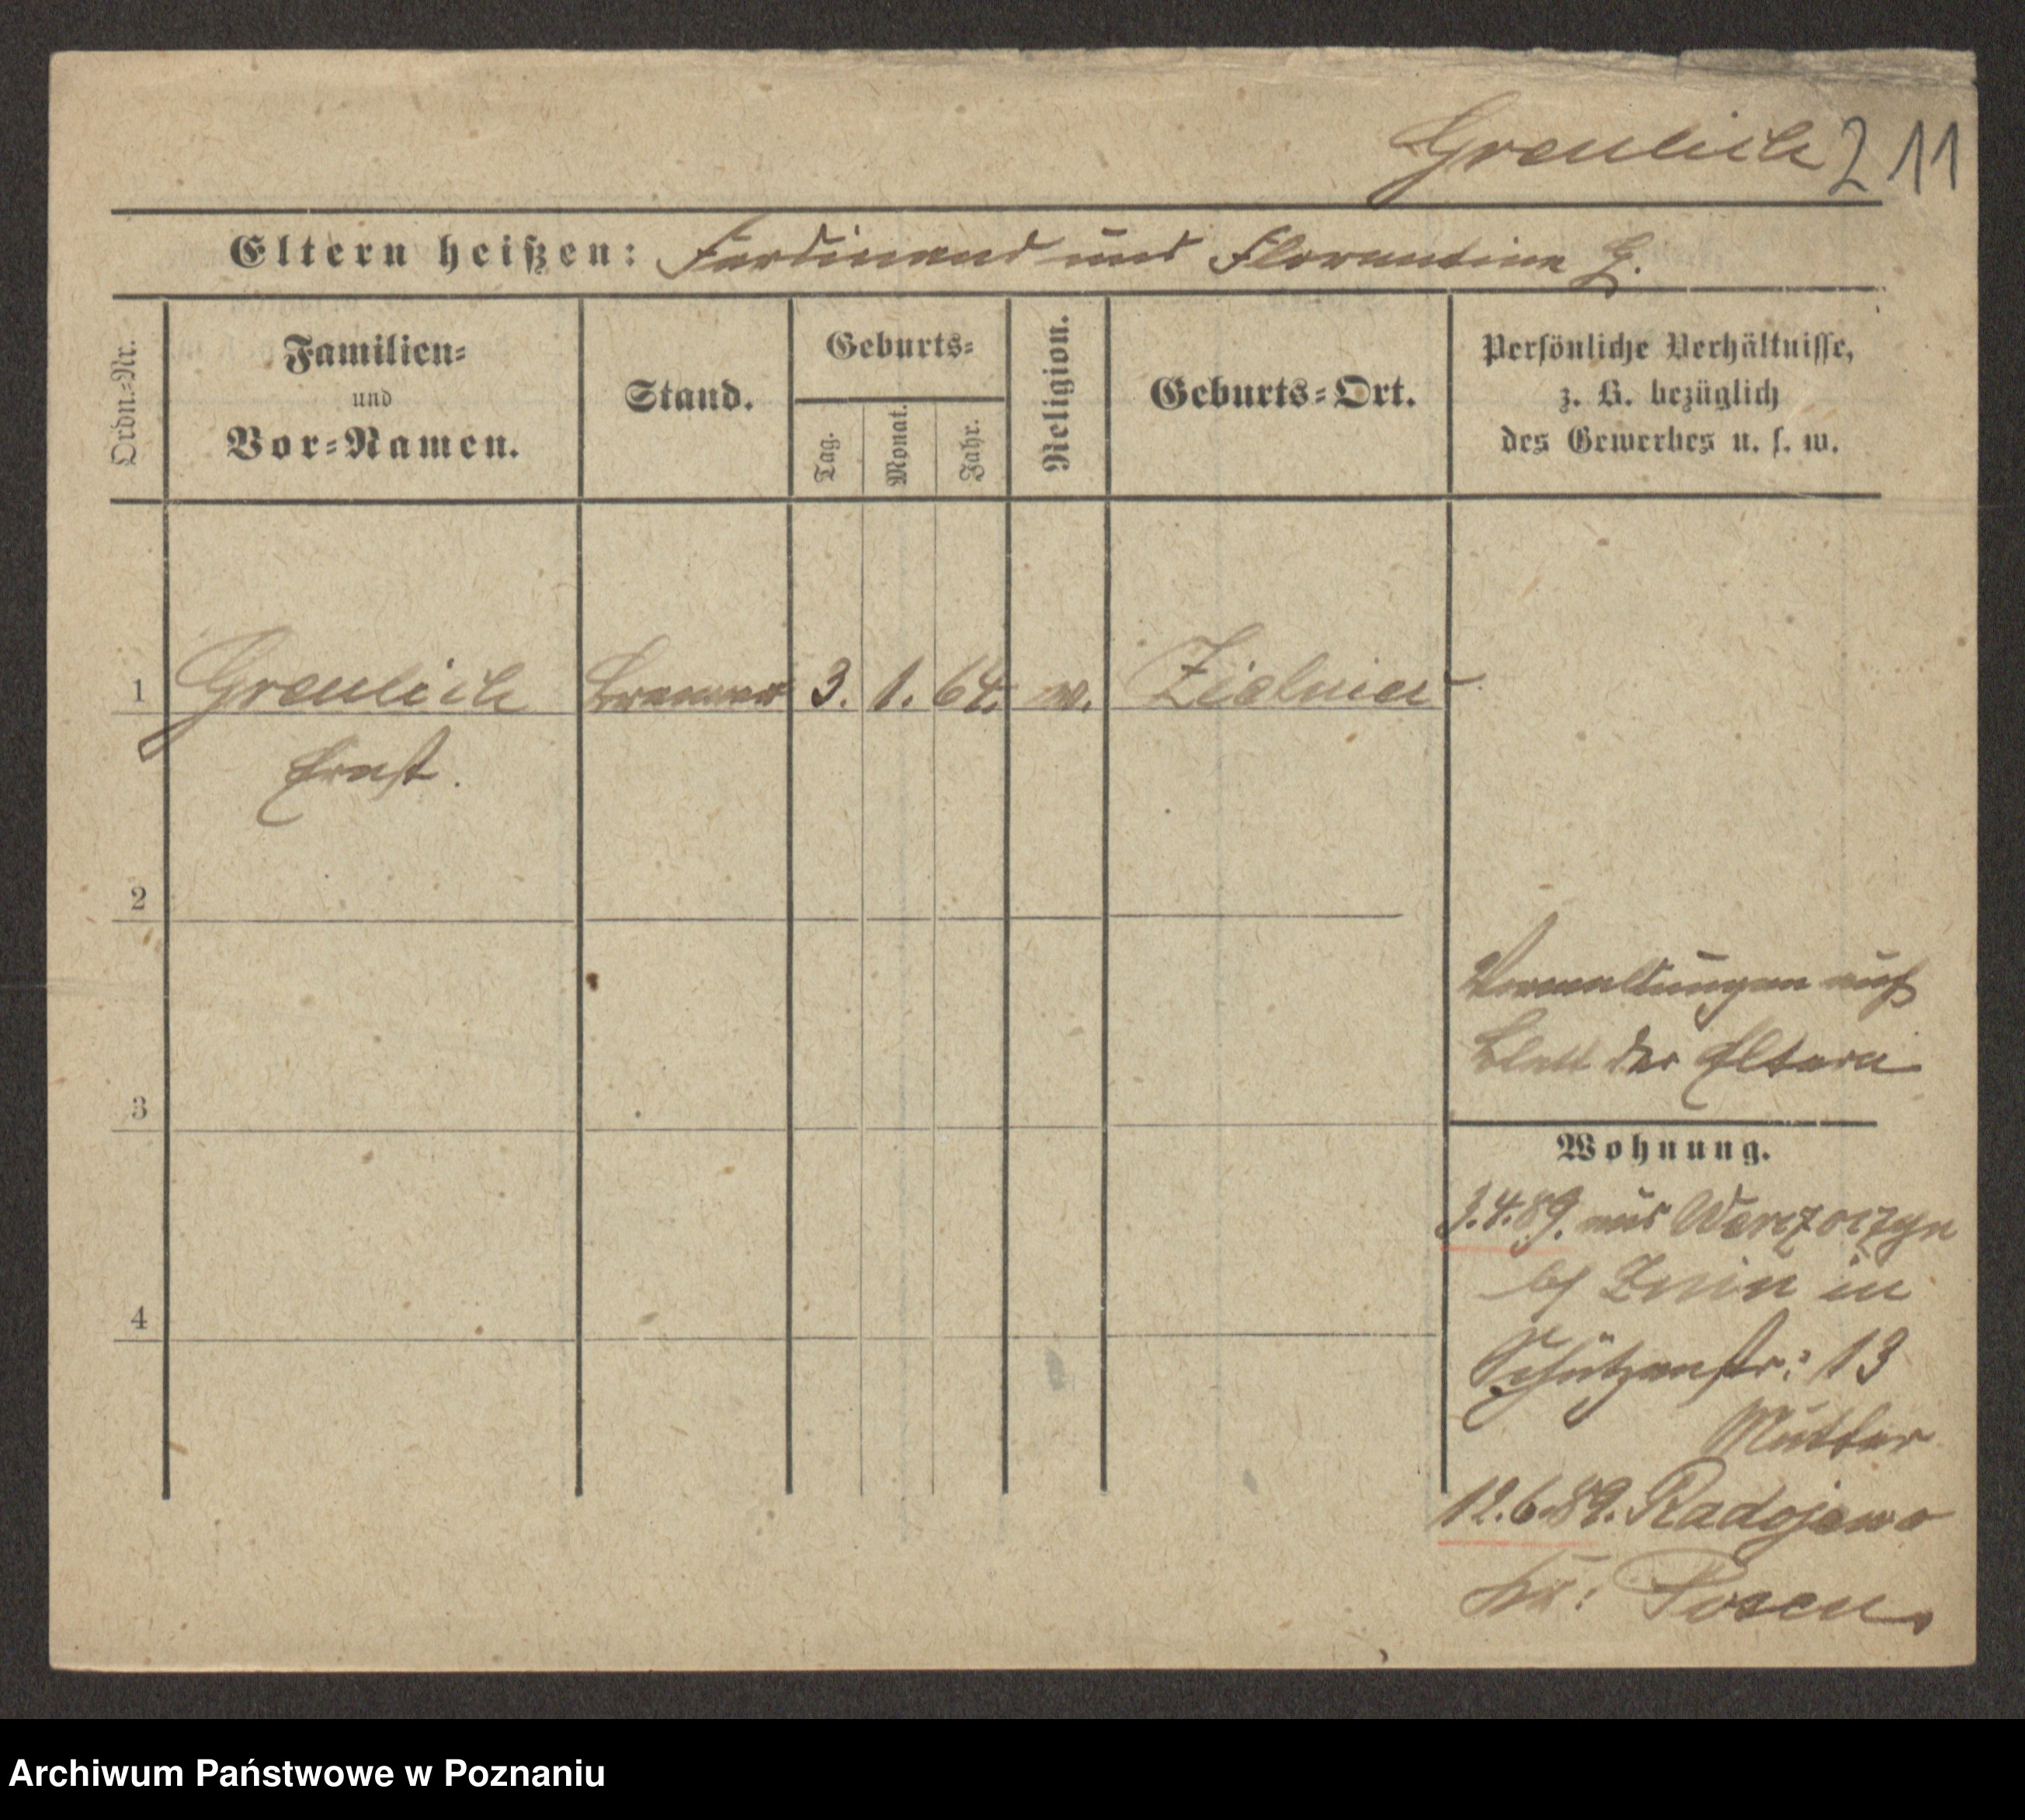 Greulich 211
Eltern heißen: Ferdinand und Florentine G.
Ordn.=Nr.
Familien=
und
Vor=Namen.
Stand.
Geburts=
Tag.
Monat.
Jahr.
Religion.
Geburts=Ort.
Persönliche Verhältnisse,
z. B. bezüglich
des Gewerbes u. s. w.
1 Greulich Brenner 3. 1. 64.
Ernst.
2
3
4
auf
Blatt der Eltern
Wohnung.
1.4.89. aus
Znin in
Schützenstr: 13
Mutter
12.6.89. Radojewo
Kr: Posen.
Archiwum Państwowe w Poznaniu